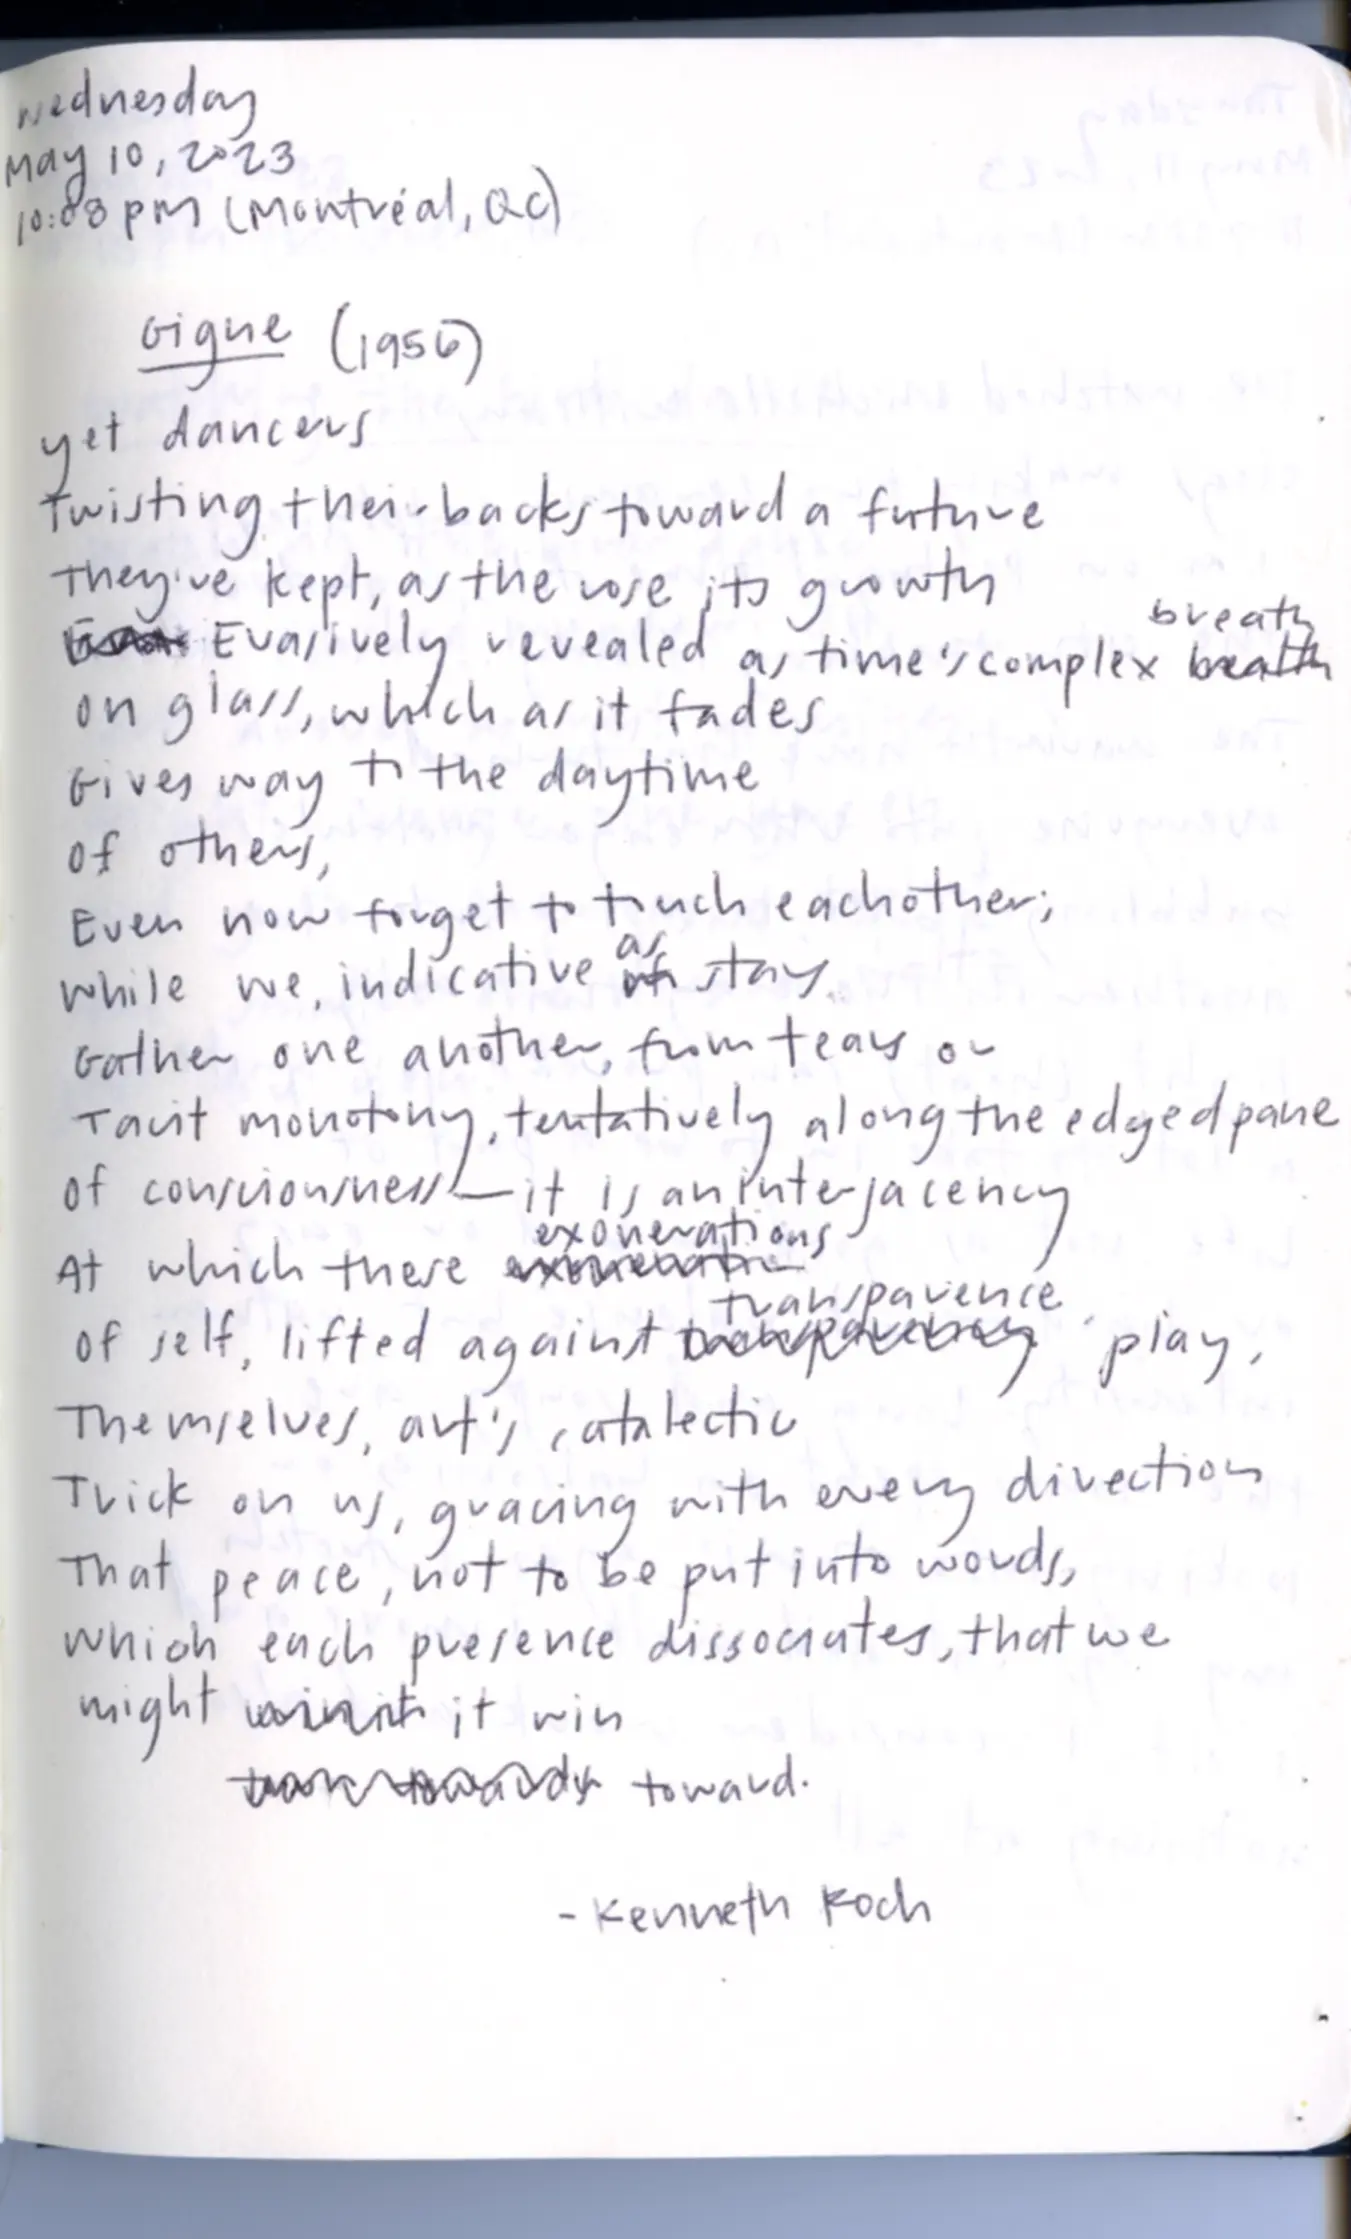 Wednesday
May 10, 2023
10:08 pm (Montréal, QC)
Gigue (1956)
yet dancers
Twisting their backs toward a future
They've kept, as the rose its growth
Evasively revealed as time's complex breath
on glass, which as it fades
Gives way to the daytime
of others,
Even now forget to touch each other;
while we, indicative as stars,
Gather one another, from tears or
Tacit monotony, tentatively along the edged pane
of consciousness—it is an interjacency
At which these exonerations
of self, lifted against transparence play,
Themselves, art's catalectic
Trick on us, gracing with every direction
That peace, not to be put into words,
which each presence dissociates, that we
might it win
toward.
- Kenneth Koch